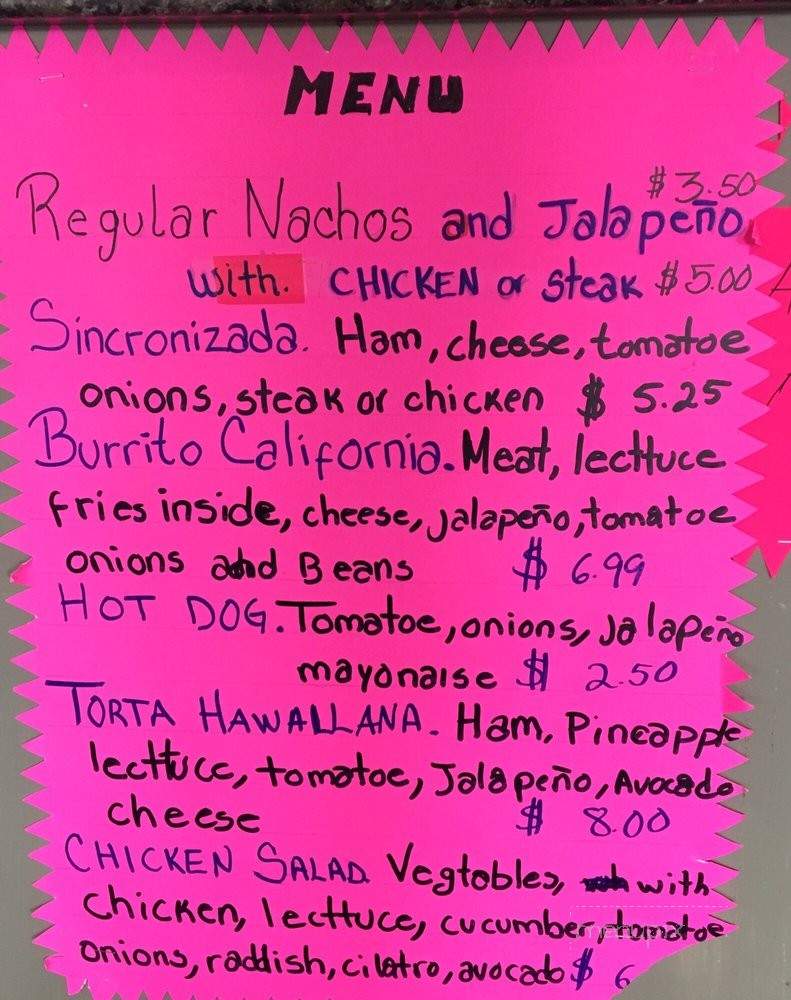 MENU
$3.50
Regular Nachos and Jalapeño
with. CHICKEN or steak $5.00
Sincronizada. Ham, cheese, tomatoe
onions, steak or chicken $ 5.25
Burrito California. Meat, lecttuce
fries inside, cheese, jalapeño, tomatoe
onions and Beans $ 6.99
HOT DOG. Tomatoe, onions, jalapeño
mayonaise $ 2.50
TORTA HAWALLANA. Ham, Pineapple
lecttuce, tomatoe, Jalapeño, Avocado
cheese $ 8.00
CHICKEN SALAD. Vegtobles, with
chicken, lecttuce, cucumber, tomatoe
onions, raddish, cilatro, avocado $ 6